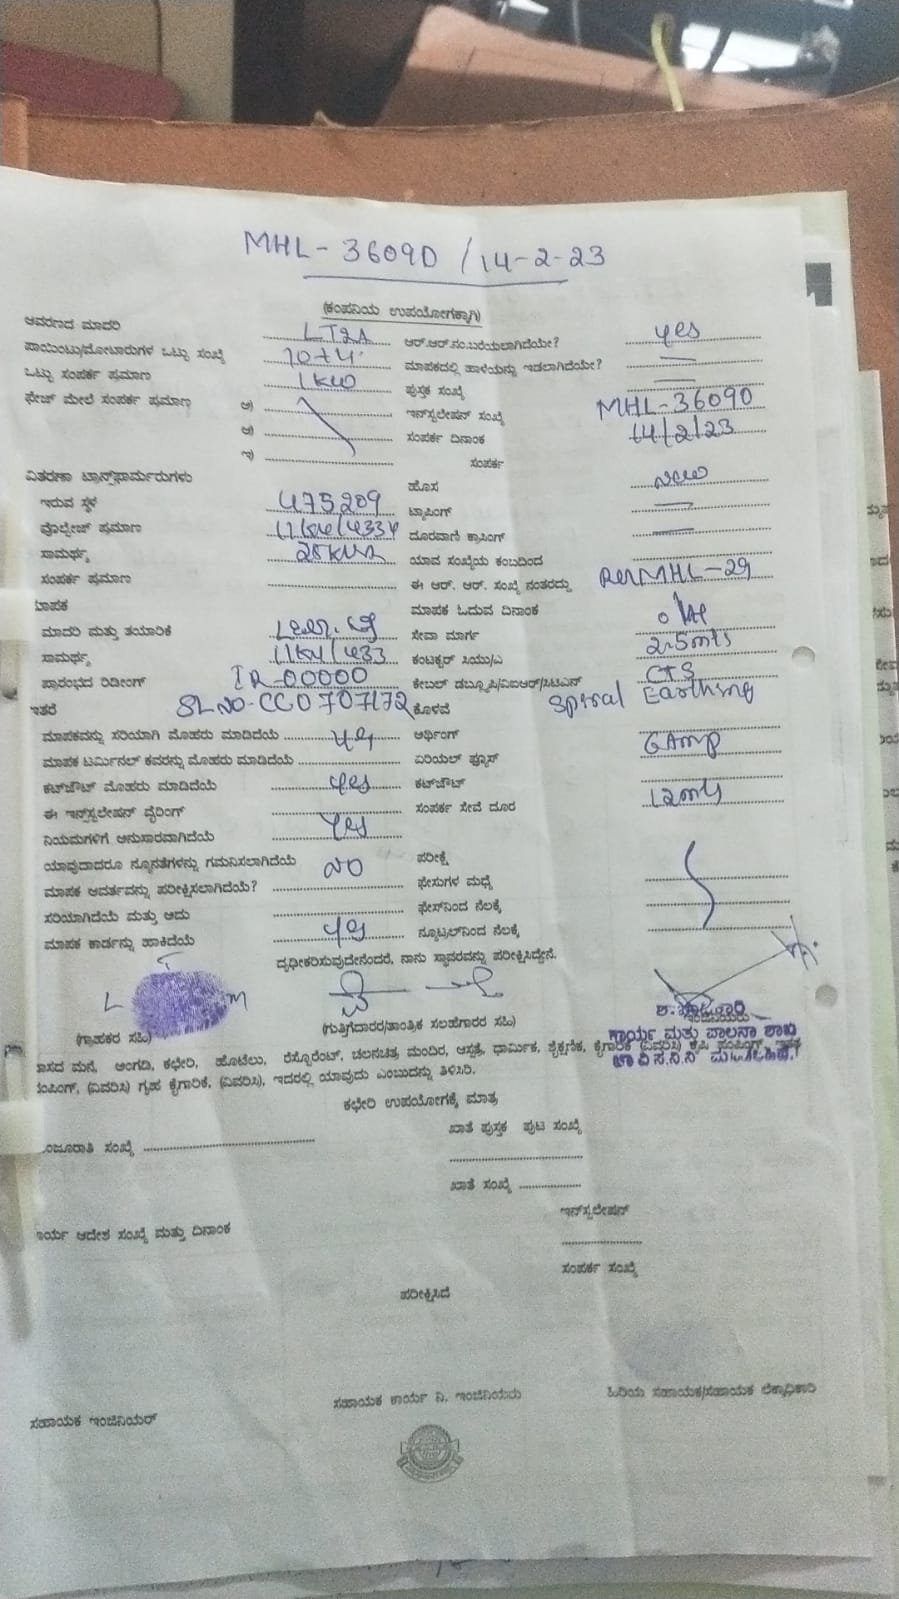 MHL-36090 / 14-2-23
(ಕಂಪನಿಯ ಉಪಯೋಗಕ್ಕಾಗಿ)
ಆವರಣದ ಮಾದರಿ LT2A ಆರ್.ಆರ್.ನಂ.ಬರೆಯಲಾಗಿದೆಯೇ? yes
ಪಾಯಿಂಟು/ಮೋಟಾರುಗಳ ಒಟ್ಟು ಸಂಖ್ಯೆ ಮಾಪಕದಲ್ಲಿ ಹಾಳೆಯನ್ನು ಇಡಲಾಗಿದೆಯೇ? —
ಒಟ್ಟು ಸಂಪರ್ಕ ಪ್ರಮಾಣ 1KW ಪುಸ್ತಕ ಸಂಖ್ಯೆ —
ಫೇಜ್ ಮೇಲೆ ಸಂಪರ್ಕ ಪ್ರಮಾಣ ಅ) ಇನ್‌ಸ್ಟಲೇಷನ್ ಸಂಖ್ಯೆ MHL-36090
ಆ) ಸಂಪರ್ಕ ದಿನಾಂಕ 14/2/23
ಇ) ಸಂಪರ್ಕ
ವಿತರಣಾ ಟ್ರಾನ್ಸ್‌ಫಾರ್ಮರುಗಳು ಹೊಸ new
ಇರುವ ಸ್ಥಳ 475209 ಟ್ಯಾಪಿಂಗ್ —
ವೊಲ್ಟೇಜ್ ಪ್ರಮಾಣ ದೂರವಾಣಿ ಕ್ರಾಸಿಂಗ್ —
ಸಾಮರ್ಥ್ಯ 25KVA ಯಾವ ಸಂಖ್ಯೆಯ ಕಂಬದಿಂದ
ಸಂಪರ್ಕ ಪ್ರಮಾಣ ಈ ಆರ್. ಆರ್. ಸಂಖ್ಯೆ ನಂತರದ್ದು MHL-29
ಮಾಪಕ ಮಾಪಕ ಓದುವ ದಿನಾಂಕ
ಮಾದರಿ ಮತ್ತು ತಯಾರಿಕೆ ಸೇವಾ ಮಾರ್ಗ 2.5mts
ಸಾಮರ್ಥ್ಯ 11KV/433 ಕಂಟಕ್ಟರ್ ಸಿಯು/ಎ
ಪ್ರಾರಂಭದ ರಿಡಿಂಗ್ IR-00000 ಕೇಬಲ್ ಡಬ್ಲ್ಯೂಪಿ/ವಿಐಆರ್/ಸಿಟಿಎಸ್ CTS
ಇತರೆ SL NO-CCO707172 ಕೊಳವೆ Spiral Earthing
ಮಾಪಕವನ್ನು ಸರಿಯಾಗಿ ಮೊಹರು ಮಾಡಿದೆಯೆ yes ಆರ್ಥಿಂಗ್
ಮಾಪಕ ಟರ್ಮಿನಲ್ ಕವರನ್ನು ಮೊಹರು ಮಾಡಿದೆಯೆ ಏರಿಯಲ್ ಫ್ಯೂಸ್ 6Amp
ಕಟ್‌ಔಟ್ ಮೊಹರು ಮಾಡಿದೆಯೆ yes ಕಟ್‌ಔಟ್
ಈ ಇನ್‌ಸ್ಟಲೇಷನ್ ವೈರಿಂಗ್ ಸಂಪರ್ಕ ಸೇವೆ ದೂರ 12mts
ನಿಯಮಗಳಿಗೆ ಅನುಸಾರವಾಗಿದೆಯೆ Yes
ಯಾವುದಾದರೂ ನ್ಯೂನತೆಗಳನ್ನು ಗಮನಿಸಲಾಗಿದೆಯೆ NO ಪರೀಕ್ಷೆ
ಮಾಪಕ ಆವರ್ತವನ್ನು ಪರೀಕ್ಷಿಸಲಾಗಿದೆಯೆ? ಫೇಸುಗಳ ಮಧ್ಯೆ
ಸರಿಯಾಗಿದೆಯೆ ಮತ್ತು ಅದು ಫೇಸ್‌ನಿಂದ ನೆಲಕ್ಕೆ
ಮಾಪಕ ಕಾರ್ಡನ್ನು ಹಾಕಿದೆಯೆ yes ನ್ಯೂಟ್ರಲ್‌ನಿಂದ ನೆಲಕ್ಕೆ
ದೃಢೀಕರಿಸುವುದೇನೆಂದರೆ, ನಾನು ಸ್ಥಾವರವನ್ನು ಪರೀಕ್ಷಿಸಿದ್ದೇನೆ.
L T M
(ಗ್ರಾಹಕರ ಸಹಿ) (ಗುತ್ತಿಗೆದಾರರ/ತಾಂತ್ರಿಕ ಸಲಹೆಗಾರರ ಸಹಿ)
ಕಾರ್ಯ ಮತ್ತು ಪಾಲನಾ ಶಾಖೆ
ವಾಸದ ಮನೆ, ಅಂಗಡಿ, ಕಛೇರಿ, ಹೊಟೆಲು, ರೆಸ್ಟೊರೆಂಟ್, ಚಲನಚಿತ್ರ ಮಂದಿರ, ಆಸ್ಪತ್ರೆ, ಧಾರ್ಮಿಕ, ಶೈಕ್ಷಣಿಕ, ಕೈಗಾರಿಕೆ (ವಿವರಿಸಿ) ಕೃಷಿ ಪಂಪಿಂಗ್,
ಪಂಪಿಂಗ್, (ವಿವರಿಸಿ) ಗೃಹ ಕೈಗಾರಿಕೆ, (ವಿವರಿಸಿ), ಇದರಲ್ಲಿ ಯಾವುದು ಎಂಬುದನ್ನು ತಿಳಿಸಿರಿ.
ಕಛೇರಿ ಉಪಯೋಗಕ್ಕೆ ಮಾತ್ರ
ಮಂಜೂರಾತಿ ಸಂಖ್ಯೆ ಖಾತೆ ಪುಸ್ತಕ ಪುಟ ಸಂಖ್ಯೆ
ಖಾತೆ ಸಂಖ್ಯೆ
ಕಾರ್ಯ ಆದೇಶ ಸಂಖ್ಯೆ ಮತ್ತು ದಿನಾಂಕ ಇನ್‌ಸ್ಟಲೇಷನ್
ಸಂಪರ್ಕ ಸಂಖ್ಯೆ
ಪರೀಕ್ಷಿಸಿದೆ
ಸಹಾಯಕ ಇಂಜಿನಿಯರ್ ಸಹಾಯಕ ಕಾರ್ಯ ನಿ. ಇಂಜಿನಿಯರು ಹಿರಿಯ ಸಹಾಯಕ/ಸಹಾಯಕ ಲೆಕ್ಕಾಧಿಕಾರಿ